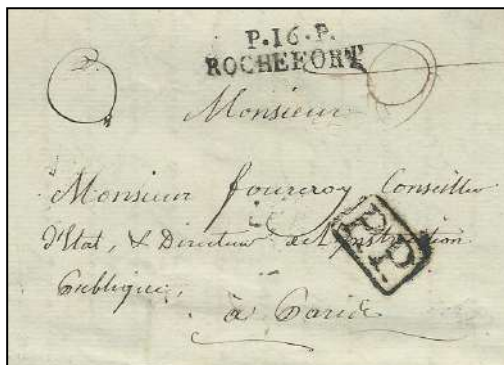 P.16.P.
ROCHEFORT
Monsieur
Monsieur fourcroy Conseiller
d'Etat, & Directeur de l'instruction
Publique,
PP.
à Paris